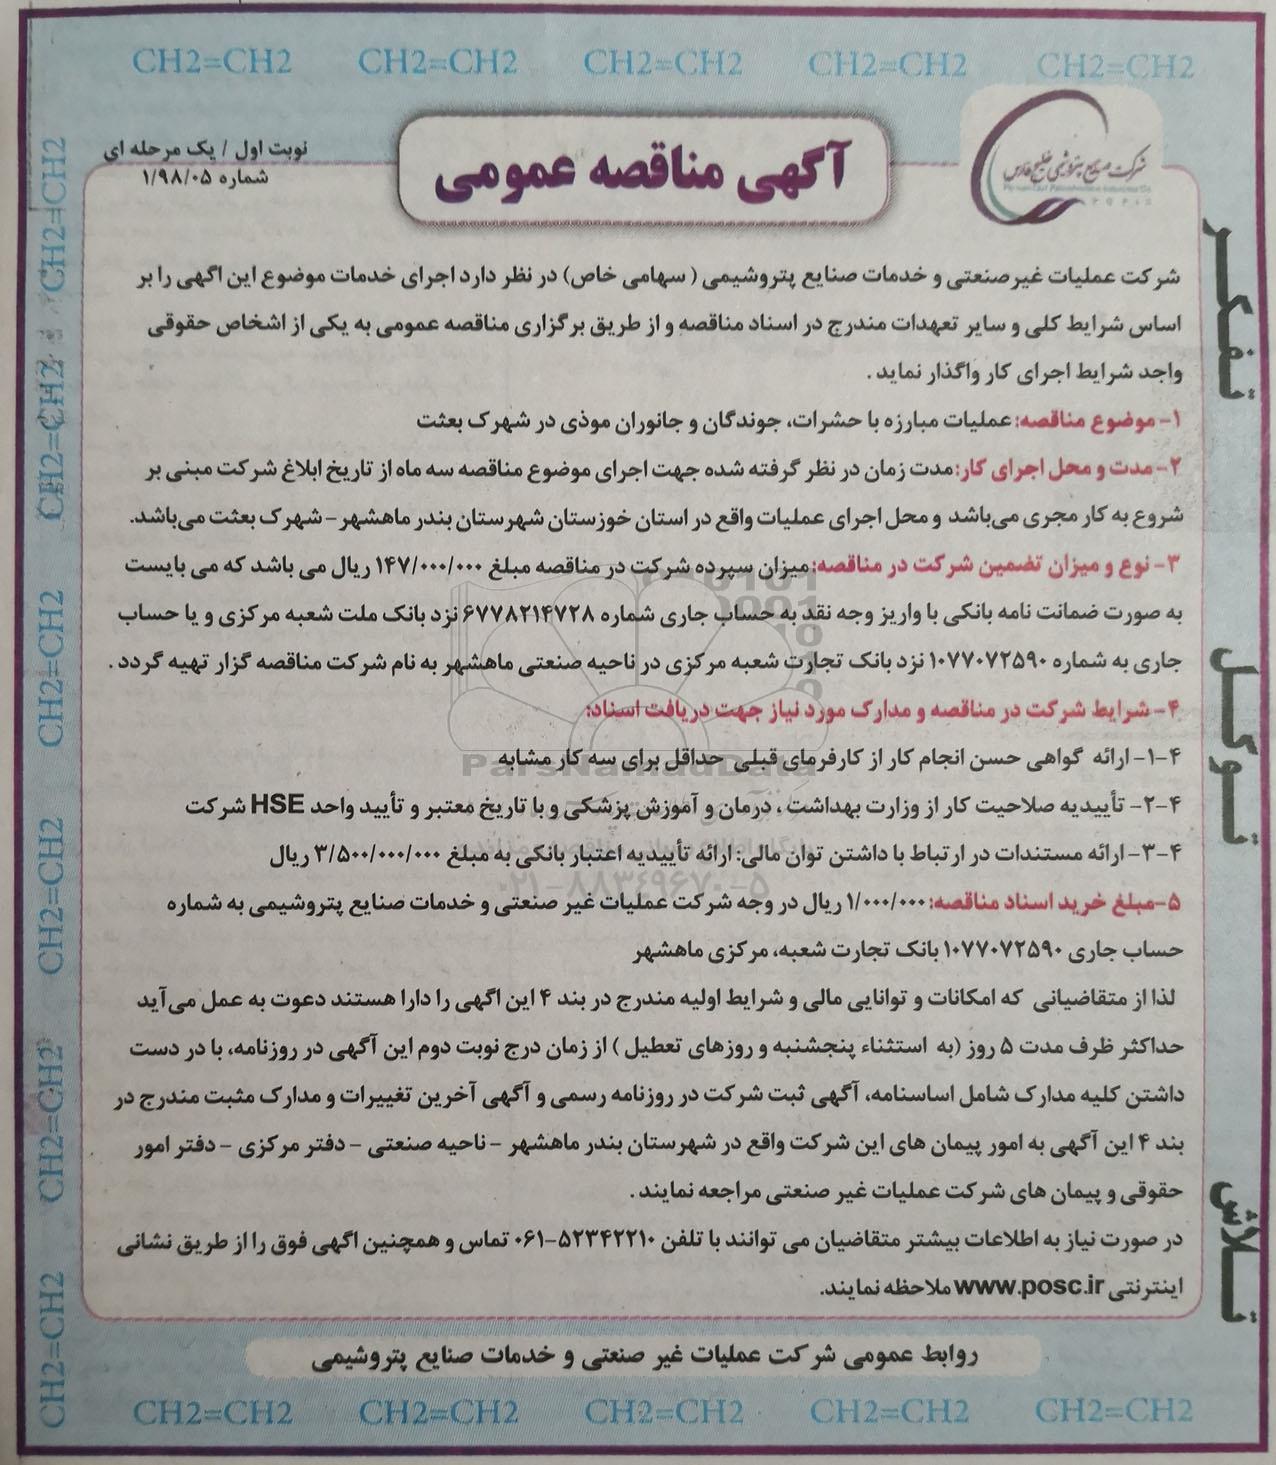 CH2=CH2 CH2=CH2 CH2=CH2 CH2=CH2 CH2=CH2
شرکت صنایع پتروشیمی خلیج فارس
آگهی مناقصه عمومی
نوبت اول / یک مرحله ای
شماره ۱/۹۸/۰۵
شرکت عملیات غیرصنعتی و خدمات صنایع پتروشیمی ( سهامی خاص) در نظر دارد اجرای خدمات موضوع این اگهی را بر
اساس شرایط کلی و سایر تعهدات مندرج در اسناد مناقصه و از طریق برگزاری مناقصه عمومی به یکی از اشخاص حقوقی
واجد شرایط اجرای کار واگذار نماید .
۱- موضوع مناقصه: عملیات مبارزه با حشرات، جوندگان و جانوران موذی در شهرک بعثت
۲- مدت و محل اجرای کار: مدت زمان در نظر گرفته شده جهت اجرای موضوع مناقصه سه ماه از تاریخ ابلاغ شرکت مبنی بر
شروع به کار مجری می‌باشد و محل اجرای عملیات واقع در استان خوزستان شهرستان بندر ماهشهر - شهرک بعثت می‌باشد.
۳- نوع و میزان تضمین شرکت در مناقصه: میزان سپرده شرکت در مناقصه مبلغ ۱۴۷/۰۰۰/۰۰۰ ریال می باشد که می بایست
به صورت ضمانت نامه بانکی با واریز وجه نقد به حساب جاری شماره ۶۷۷۸۲۱۴۷۲۸ نزد بانک ملت شعبه مرکزی و یا حساب
جاری به شماره ۱۰۷۷۰۷۲۵۹۰ نزد بانک تجارت شعبه مرکزی در ناحیه صنعتی ماهشهر به نام شرکت مناقصه گزار تهیه گردد .
۴- شرایط شرکت در مناقصه و مدارک مورد نیاز جهت دریافت اسناد:
۴-۱- ارائه گواهی حسن انجام کار از کارفرمای قبلی حداقل برای سه کار مشابه
۴-۲- تأییدیه صلاحیت کار از وزارت بهداشت ، درمان و آموزش پزشکی و با تاریخ معتبر و تأیید واحد HSE شرکت
۴-۳- ارائه مستندات در ارتباط با داشتن توان مالی: ارائه تأییدیه اعتبار بانکی به مبلغ ۳/۵۰۰/۰۰۰/۰۰۰ ریال
۵-مبلغ خرید اسناد مناقصه: ۱/۰۰۰/۰۰۰ ریال در وجه شرکت عملیات غیر صنعتی و خدمات صنایع پتروشیمی به شماره
حساب جاری ۱۰۷۷۰۷۲۵۹۰ بانک تجارت شعبه، مرکزی ماهشهر
لذا از متقاضیانی که امکانات و توانایی مالی و شرایط اولیه مندرج در بند ۴ این اگهی را دارا هستند دعوت به عمل می‌آید
حداکثر ظرف مدت ۵ روز (به استثناء پنجشنبه و روزهای تعطیل ) از زمان درج نوبت دوم این آگهی در روزنامه، با در دست
داشتن کلیه مدارک شامل اساسنامه، آگهی ثبت شرکت در روزنامه رسمی و آگهی آخرین تغییرات و مدارک مثبت مندرج در
بند ۴ این آگهی به امور پیمان های این شرکت واقع در شهرستان بندر ماهشهر - ناحیه صنعتی - دفتر مرکزی - دفتر امور
حقوقی و پیمان های شرکت عملیات غیر صنعتی مراجعه نمایند .
در صورت نیاز به اطلاعات بیشتر متقاضیان می توانند با تلفن ۵۲۳۴۲۲۱۰-۰۶۱ تماس و همچنین اگهی فوق را از طریق نشانی
اینترنتی www.posc.ir ملاحظه نمایند.
روابط عمومی شرکت عملیات غیر صنعتی و خدمات صنایع پتروشیمی
تفکر
توکل
تلاش
CH2=CH2
CH2=CH2
CH2=CH2
CH2=CH2
CH2=CH2
CH2=CH2
CH2=CH2 CH2=CH2 CH2=CH2 CH2=CH2 CH2=CH2
ParsNamadData
۰۲۱-۸۸۳۴۹۶۷۰-۵